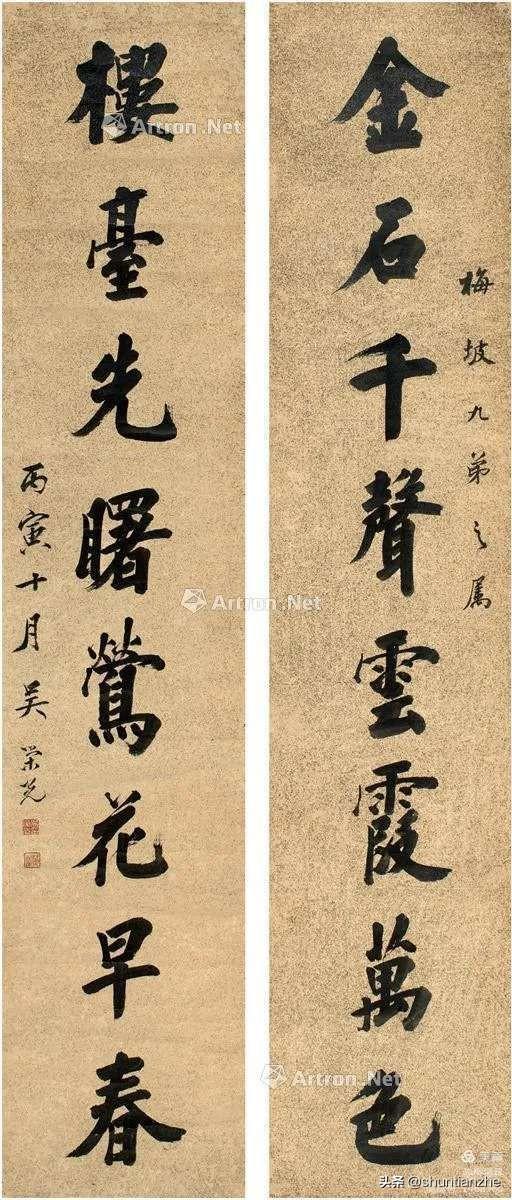 金石千聲雲霞萬色
梅坡九弟之属
樓臺先曙鶯花早春
丙寅十月吴荣光
Artron.Net
Artron.Net
Artron.Net
Artron.Net
头条 @shuntianzhe